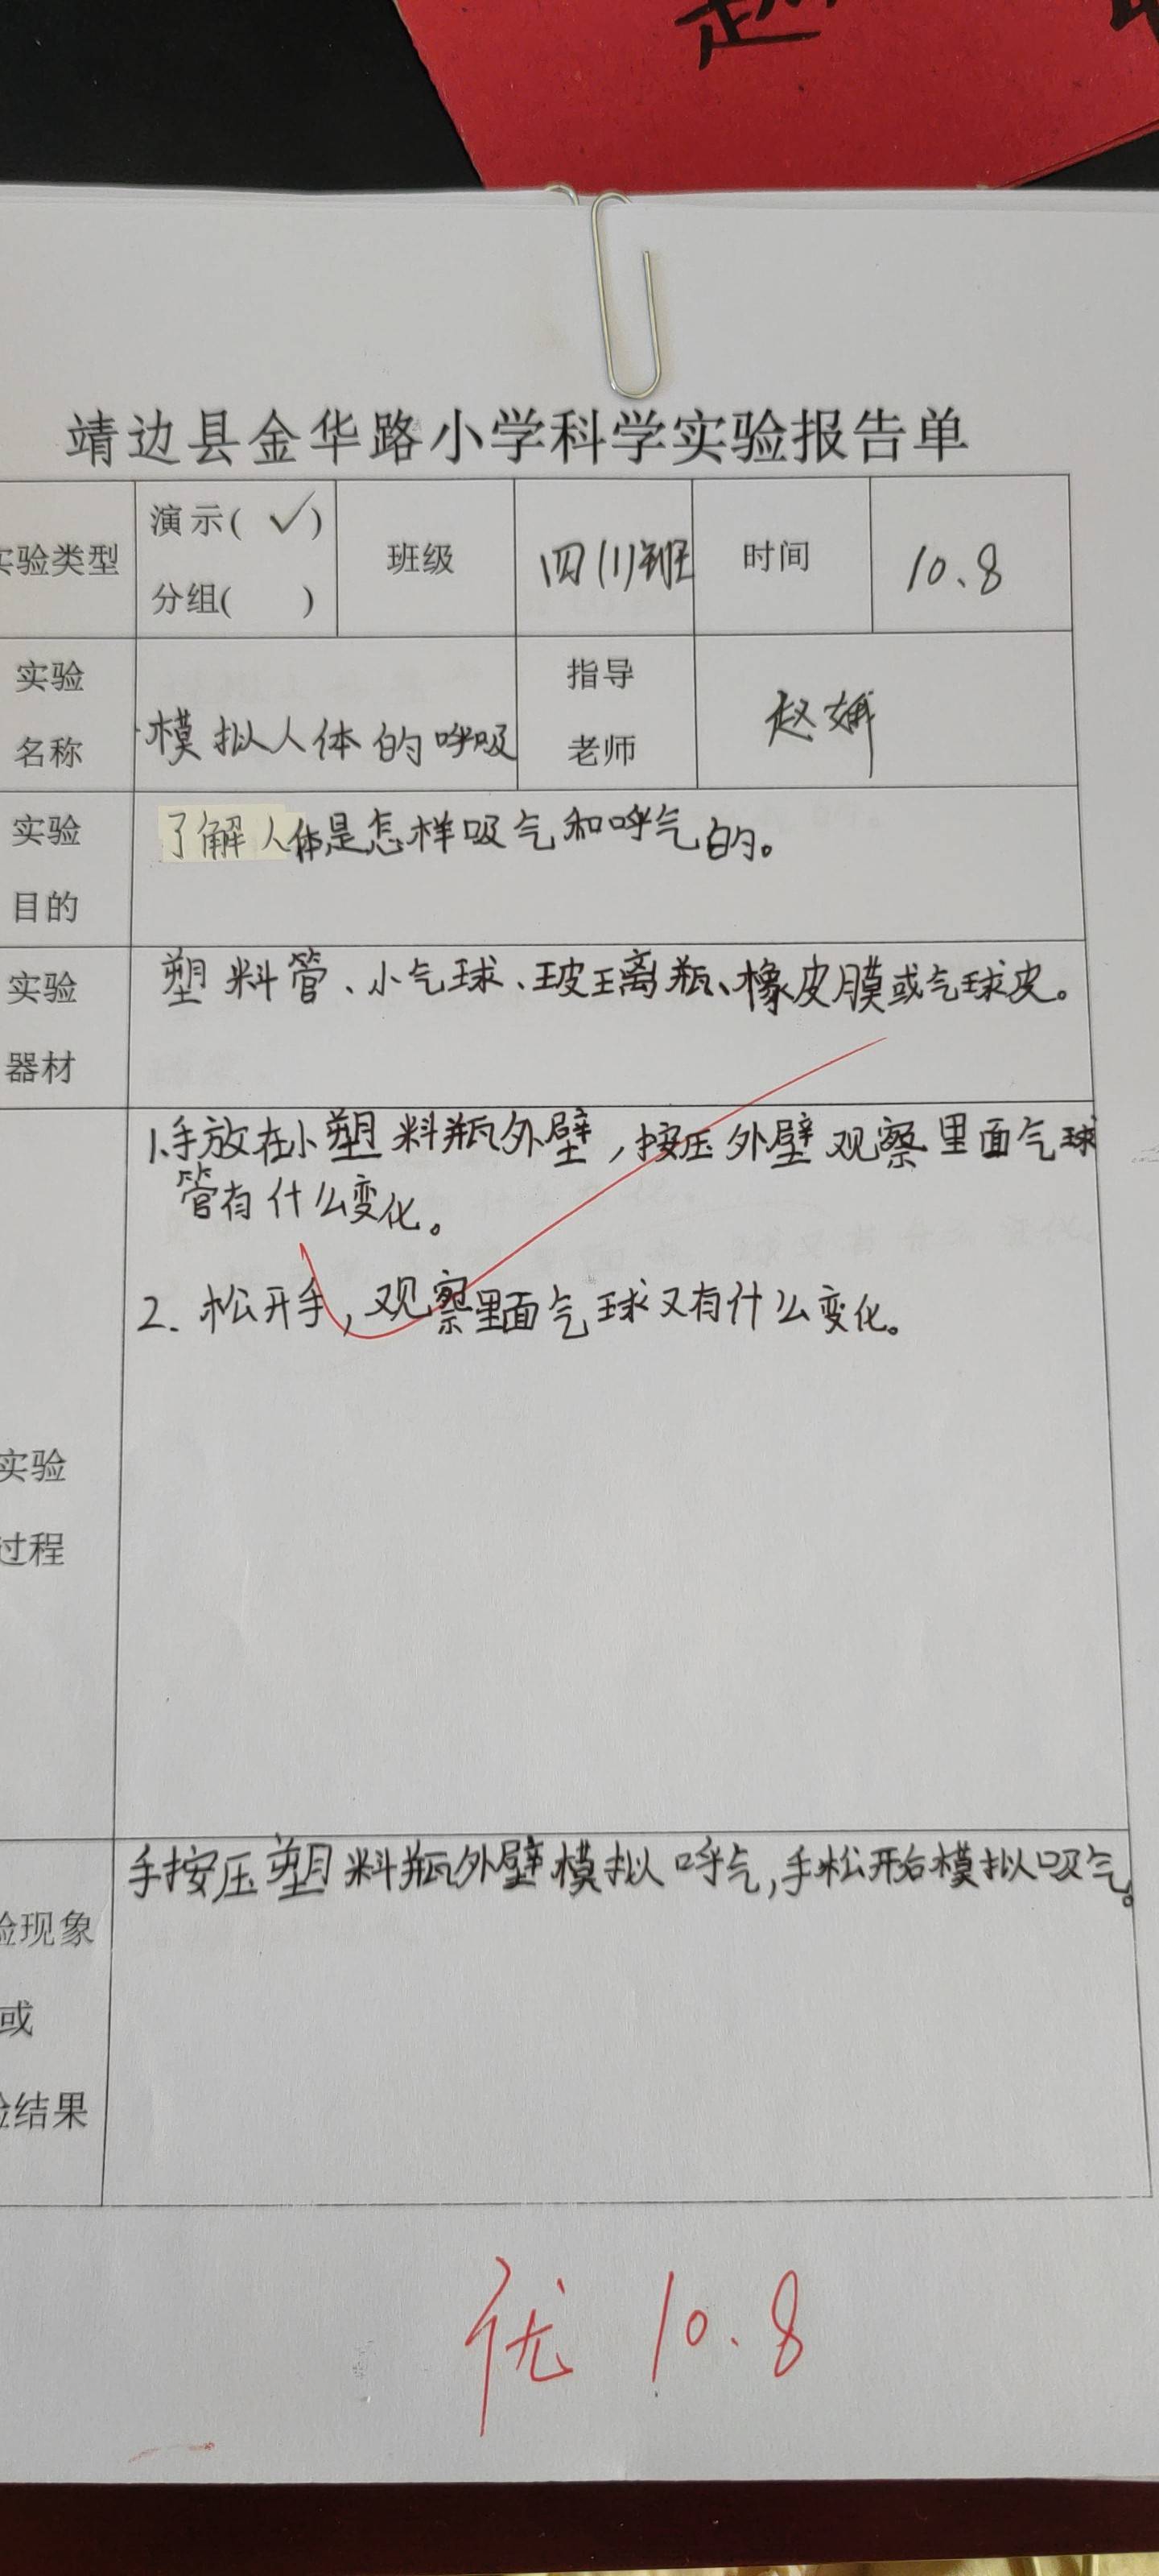 靖边县金华路小学科学实验报告单
实验类型
演示( ✓)
分组( )
班级
四(1)班
时间
10.8
实验
名称
模拟人体的呼吸
指导
老师
赵娟
实验
目的
了解人体是怎样吸气和呼气的。
实验
器材
塑料管、小气球、玻璃瓶、橡皮膜或气球皮。
实验
过程
1.手放在小塑料瓶外壁,按压外壁观察里面气球
管有什么变化。
2.松开手,观察里面气球又有什么变化。
验现象
或
验结果
手按压塑料瓶外壁模拟呼气,手松开后模拟吸气。
优 10.8